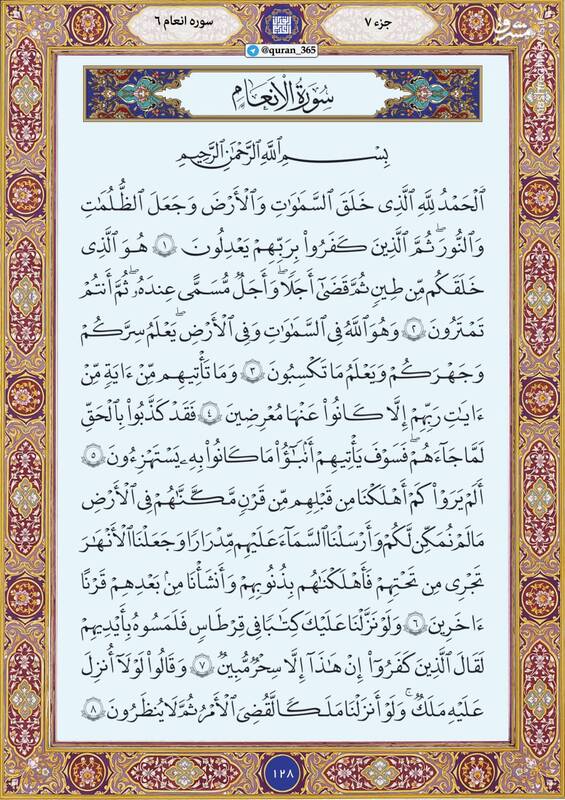 سوره انعام ۶
جزء ۷
@quran_365
سُورَةُ الأَنعَامِ
بِسْمِ ٱللَّهِ ٱلرَّحْمَٰنِ ٱلرَّحِيمِ
ٱلْحَمْدُ لِلَّهِ ٱلَّذِى خَلَقَ ٱلسَّمَٰوَٰتِ وَٱلْأَرْضَ وَجَعَلَ ٱلظُّلُمَٰتِ
وَٱلنُّورَ ۖ ثُمَّ ٱلَّذِينَ كَفَرُوا۟ بِرَبِّهِمْ يَعْدِلُونَ ۝١ هُوَ ٱلَّذِى
خَلَقَكُم مِّن طِينٍ ثُمَّ قَضَىٰٓ أَجَلًا ۖ وَأَجَلٌ مُّسَمًّى عِندَهُۥ ۖ ثُمَّ أَنتُمْ
تَمْتَرُونَ ۝٢ وَهُوَ ٱللَّهُ فِى ٱلسَّمَٰوَٰتِ وَفِى ٱلْأَرْضِ ۖ يَعْلَمُ سِرَّكُمْ
وَجَهْرَكُمْ وَيَعْلَمُ مَا تَكْسِبُونَ ۝٣ وَمَا تَأْتِيهِم مِّنْ ءَايَةٍ مِّنْ
ءَايَٰتِ رَبِّهِمْ إِلَّا كَانُوا۟ عَنْهَا مُعْرِضِينَ ۝٤ فَقَدْ كَذَّبُوا۟ بِٱلْحَقِّ
لَمَّا جَآءَهُمْ ۖ فَسَوْفَ يَأْتِيهِمْ أَنۢبَٰٓؤُا۟ مَا كَانُوا۟ بِهِۦ يَسْتَهْزِءُونَ ۝٥
أَلَمْ يَرَوْا۟ كَمْ أَهْلَكْنَا مِن قَبْلِهِم مِّن قَرْنٍ مَّكَّنَّٰهُمْ فِى ٱلْأَرْضِ
مَا لَمْ نُمَكِّن لَّكُمْ وَأَرْسَلْنَا ٱلسَّمَآءَ عَلَيْهِم مِّدْرَارًا وَجَعَلْنَا ٱلْأَنْهَٰرَ
تَجْرِى مِن تَحْتِهِمْ فَأَهْلَكْنَٰهُم بِذُنُوبِهِمْ وَأَنشَأْنَا مِنۢ بَعْدِهِمْ قَرْنًا
ءَاخَرِينَ ۝٦ وَلَوْ نَزَّلْنَا عَلَيْكَ كِتَٰبًا فِى قِرْطَاسٍ فَلَمَسُوهُ بِأَيْدِيهِمْ
لَقَالَ ٱلَّذِينَ كَفَرُوٓا۟ إِنْ هَٰذَآ إِلَّا سِحْرٌ مُّبِينٌ ۝٧ وَقَالُوا۟ لَوْلَآ أُنزِلَ
عَلَيْهِ مَلَكٌ ۖ وَلَوْ أَنزَلْنَا مَلَكًا لَّقُضِىَ ٱلْأَمْرُ ثُمَّ لَا يُنظَرُونَ ۝٨
۱۲۸